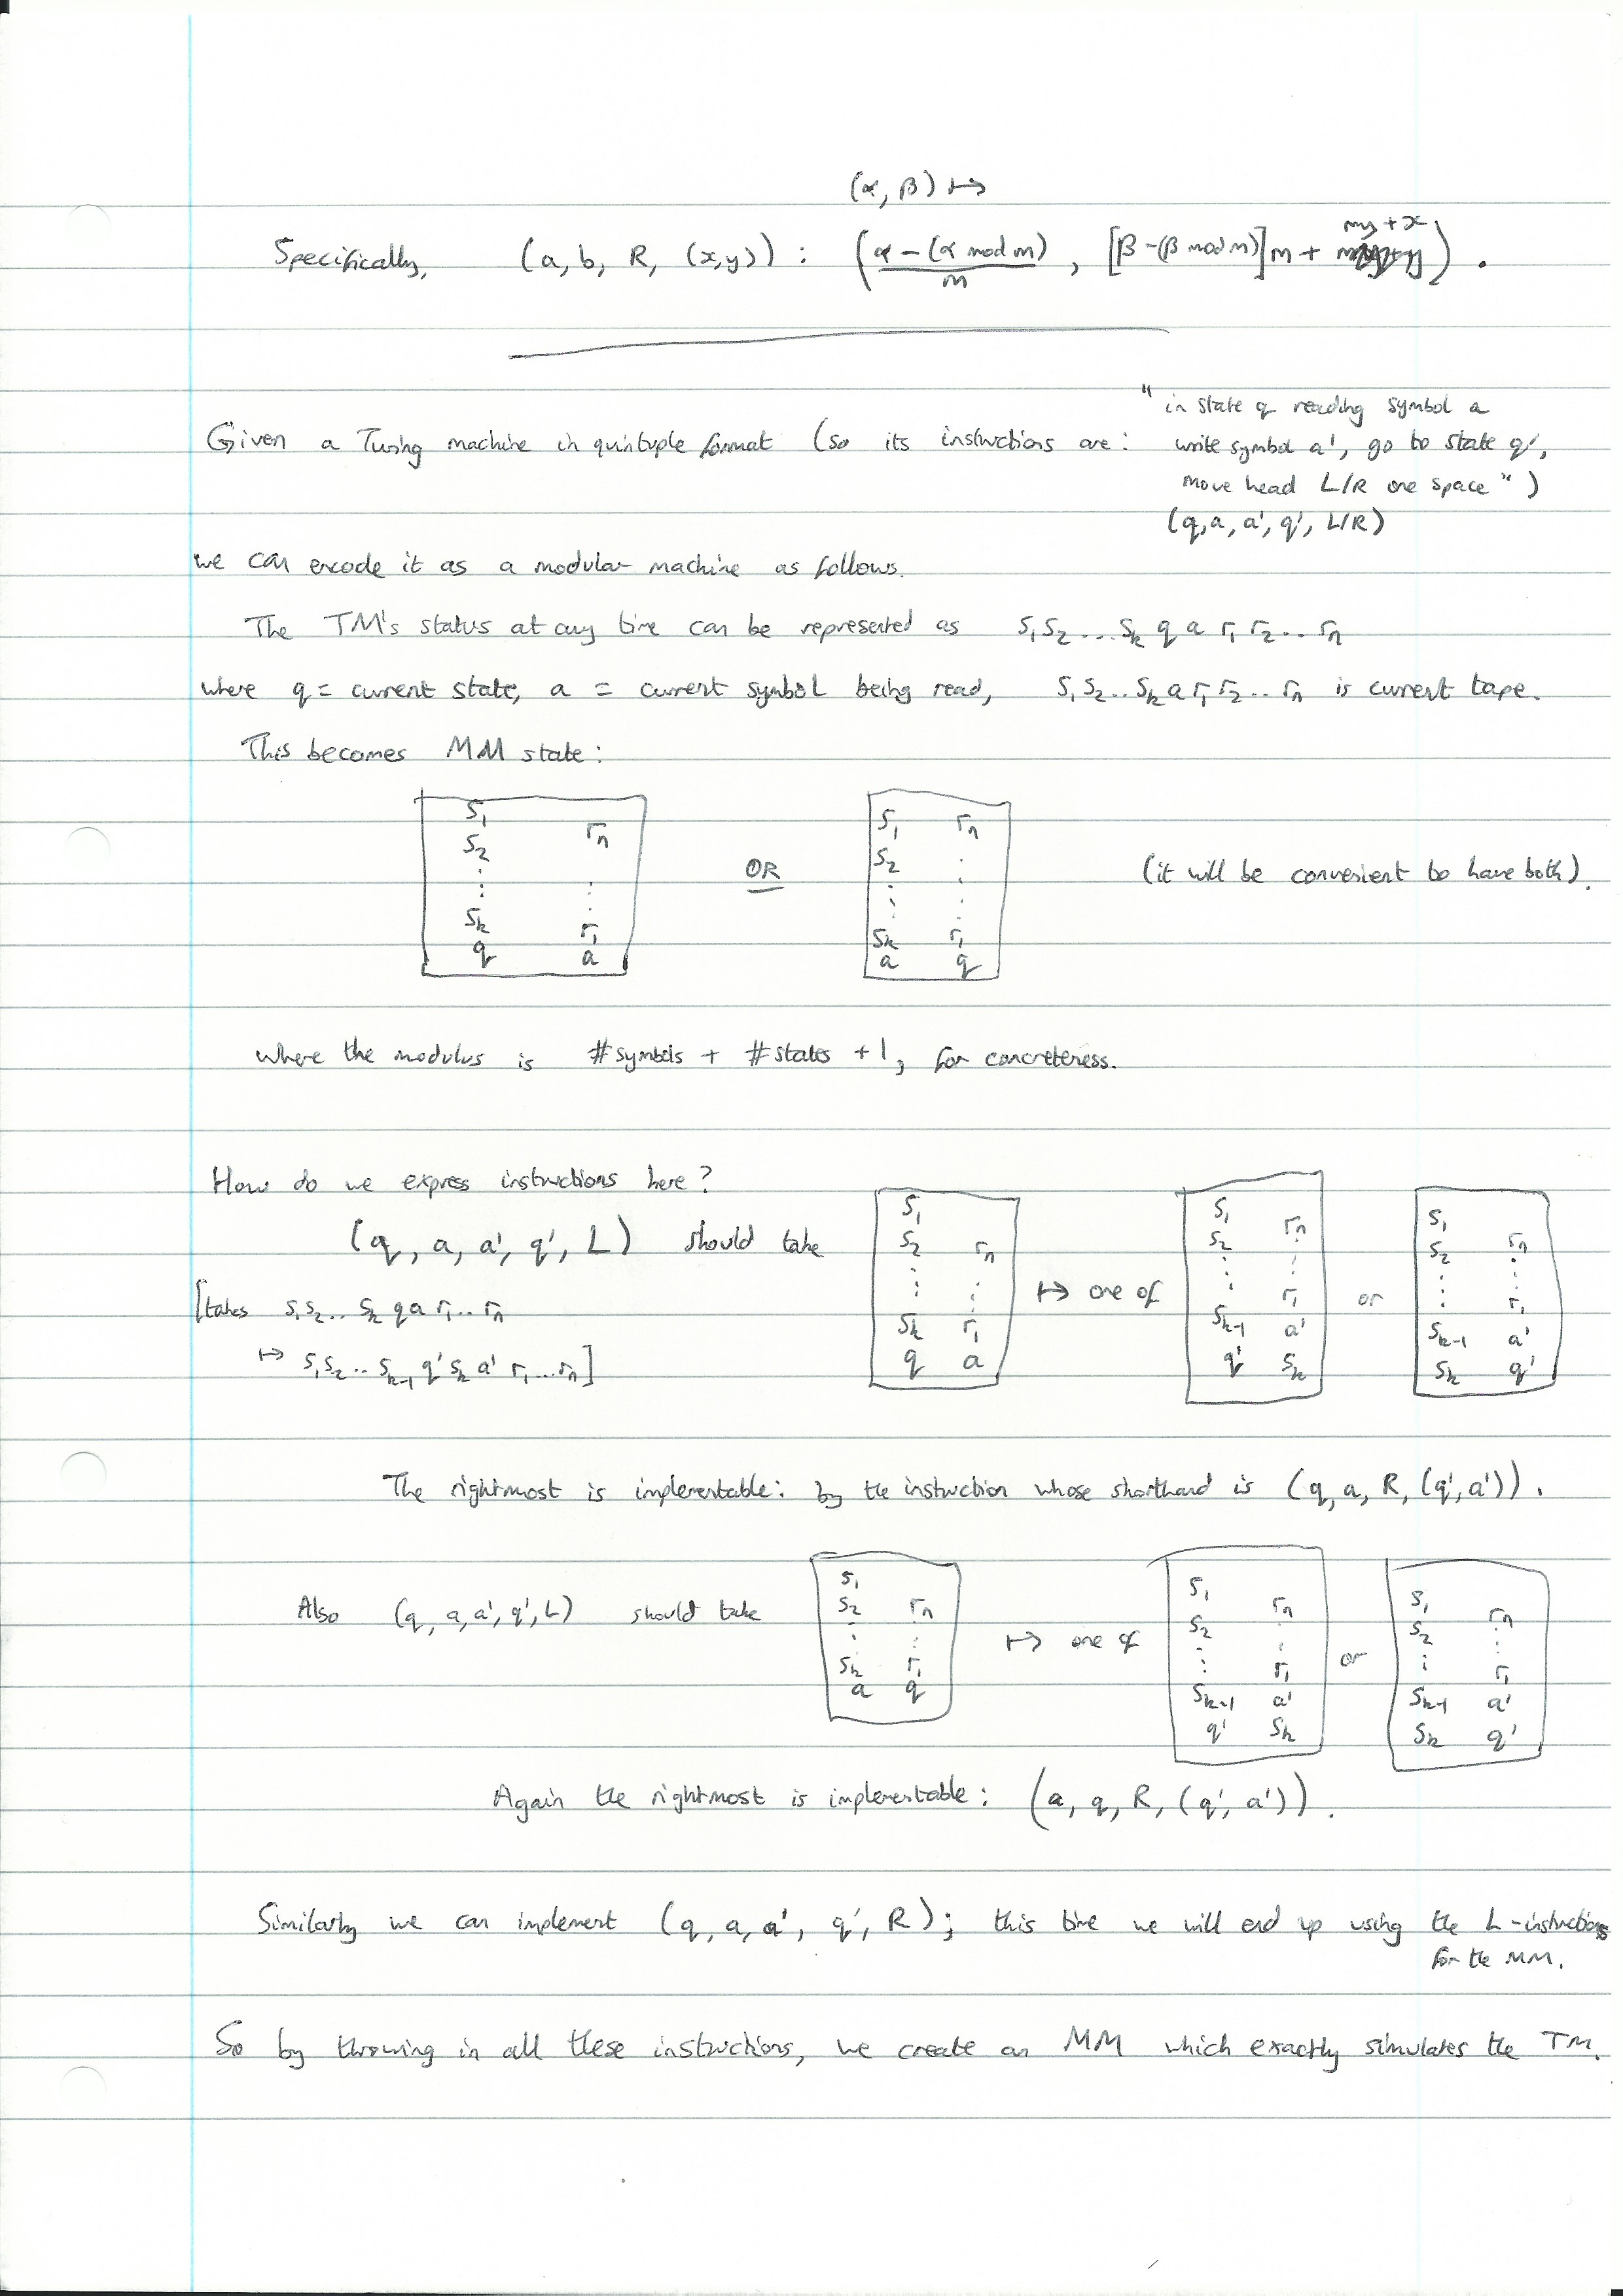 (α, β) ↦
my + x
Specifically, (a, b, R, (x,y)) : ( α - (α mod m) / m , [β - (β mod m)] m + ) .
" in state q reading symbol a
Given a Turing machine in quintuple format (so its instructions are: write symbol a', go to state q',
move head L/R one space " )
(q, a, a', q', L/R)
we can encode it as a modular machine as follows.
The TM's status at any time can be represented as s₁s₂...sₖ q a r₁ r₂...rₙ
where q = current state, a = current symbol being read, s₁s₂..sₖ a r₁ r₂..rₙ is current tape.
This becomes MM state:
s₁
s₂ rₙ
⋮ ⋮
sₖ r₁
q a
OR
s₁ rₙ
s₂ .
⋮ ⋮
sₖ r₁
a q
(it will be convenient to have both).
where the modulus is #symbols + #states + 1, for concreteness.
How do we express instructions here?
(q, a, a', q', L) should take
[takes s₁s₂..sₖ q a r₁..rₙ
↦ s₁s₂..sₖ₋₁ q' sₖ a' r₁...rₙ]
s₁
s₂ rₙ
⋮ ⋮
sₖ r₁
q a
↦ one of
s₁ rₙ
s₂ ⋮
⋮ r₁
sₖ₋₁ a'
q' sₖ
or
s₁
s₂ rₙ
⋮ r₁
sₖ₋₁ a'
sₖ q'
The rightmost is implementable: by the instruction whose shorthand is (q, a, R, (q', a')).
Also (q, a, a', q', L) should take
s₁
s₂ rₙ
⋮ ⋮
sₖ r₁
a q
↦ one of
s₁ rₙ
s₂ ⋮
⋮ r₁
sₖ₋₁ a'
q' sₖ
or
s₁ rₙ
s₂ ⋮
⋮ r₁
sₖ₋₁ a'
sₖ q'
Again the rightmost is implementable: (a, q, R, (q', a')).
Similarly we can implement (q, a, a', q', R); this time we will end up using the L-instructions
for the MM.
So by throwing in all these instructions, we create an MM which exactly simulates the TM.